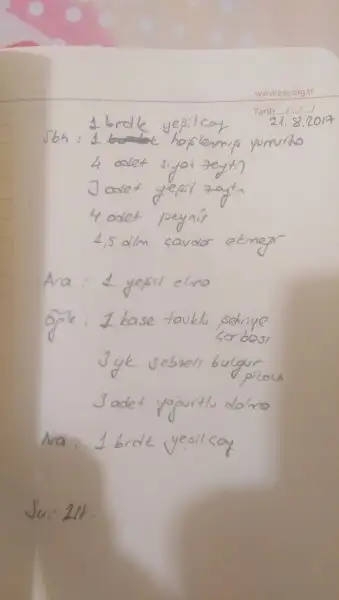 Tarih .../.../...
21.8.2017
1 brdk yeşil çay
Sbh : 1 haşlanmış yumurta
4 adet siyah zeytin
3 adet yeşil zeytin
4 adet peynir
1,5 dlm çavdar ekmeği
Ara : 1 yeşil elma
Öğle : 1 kase tavuklu şehriye
çorbası
3 yk sebzeli bulgur
pilavı
3 adet yoğurtlu dolma
Ara : 1 brdk yeşil çay
Su : 2lt.